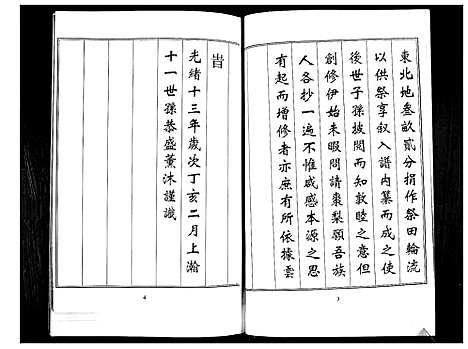 東北地叁畝貳分捐作祭田輪流
以供祭享叙入譜内纂而成之使
後世子孫披閱而知敦睦之意但
創修伊始未暇問請棗梨願吾族
人各抄一遍不惟感本源之恩
有起而增修者亦庶有所依據雲
3
旹
光緒十三年歲次丁亥二月上瀚
十一世孫恭盛薰沐謹識
4